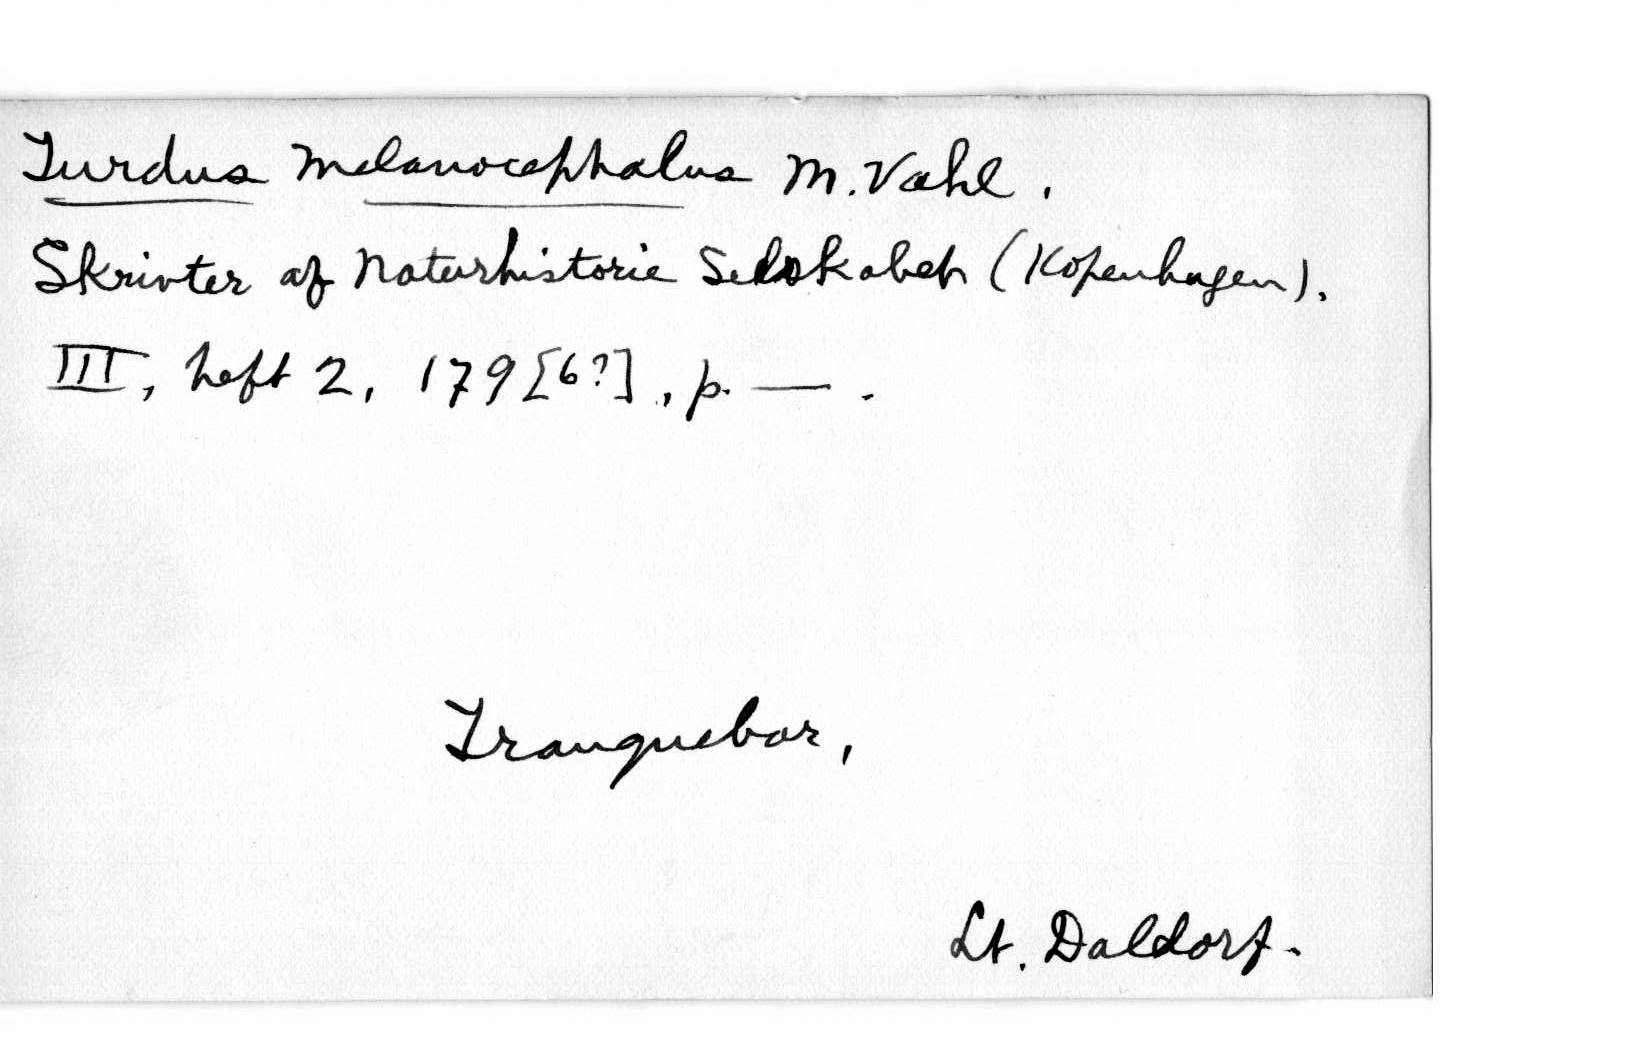 Turdus melanocephalus M. Vahl.
Skrivter af Naturhistorie Selskabet (Kopenhagen).
III, heft 2, 179[6?], p. — .
Tranquebar,
Lt. Daldorf.